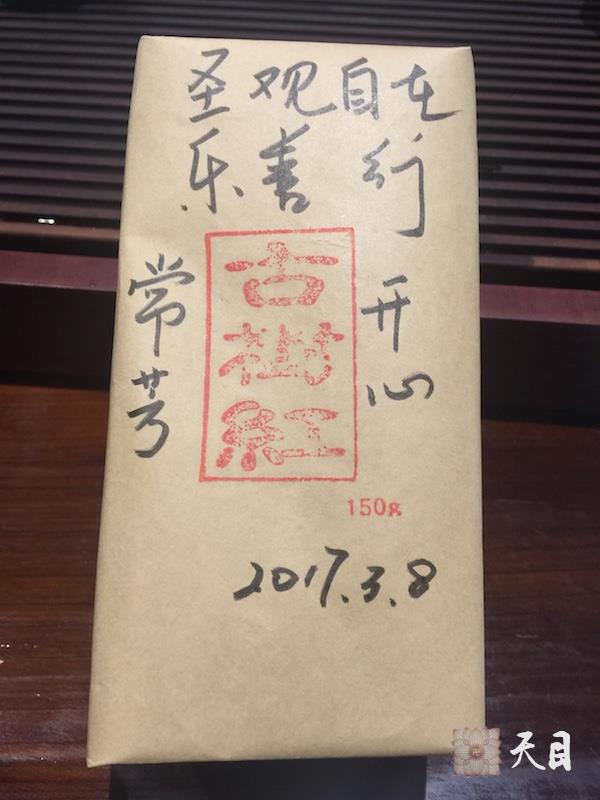 圣观自在
乐善行
开心
常芳
古樹紅
150g
2017.3.8
天目